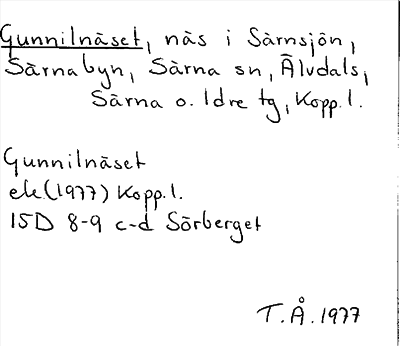 Gunnilnäset, näs i Särnsjön,
Särnabyn, Särna sn, Älvdals,
Särna o. Idre tg, Kopp. l.
Gunnilnäset
ek (1977) Kopp. l.
15D 8-9 c-d Sörberget
T. Å. 1977